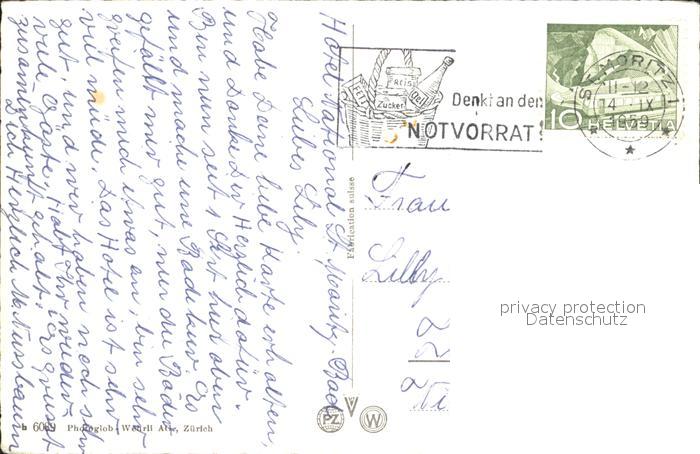 Hotel National St. Moritz-Bad
Liebes Lily.
Habe Deine liebe Karte erhalten,
und Danke Dir Herzlich dafür.
Bin nun seit 1 Sept hier oben
und mache eine Badekur. Es
gefällt mir gut, nur die Bäder
greifen mich etwas an, bin sehr
viel müde. Das Hotel ist sehr
gut, und wir haben noch sehr
viele Gäste. Habt Ihr wieder
zusammenkunft gehabt. Es grüsst
Dich Herzlich M. Nussbaum
6039 Photoglob-Wehrli A.G., Zürich
Fabrication suisse
PZ
W
FETT
REIS
Zucker
Oel
Denkt an den
NOTVORRAT
ST. MORITZ 1
11-12
14. IX
1959
10 HELVETIA
Frau
Lilly
privacy protection
Datenschutz